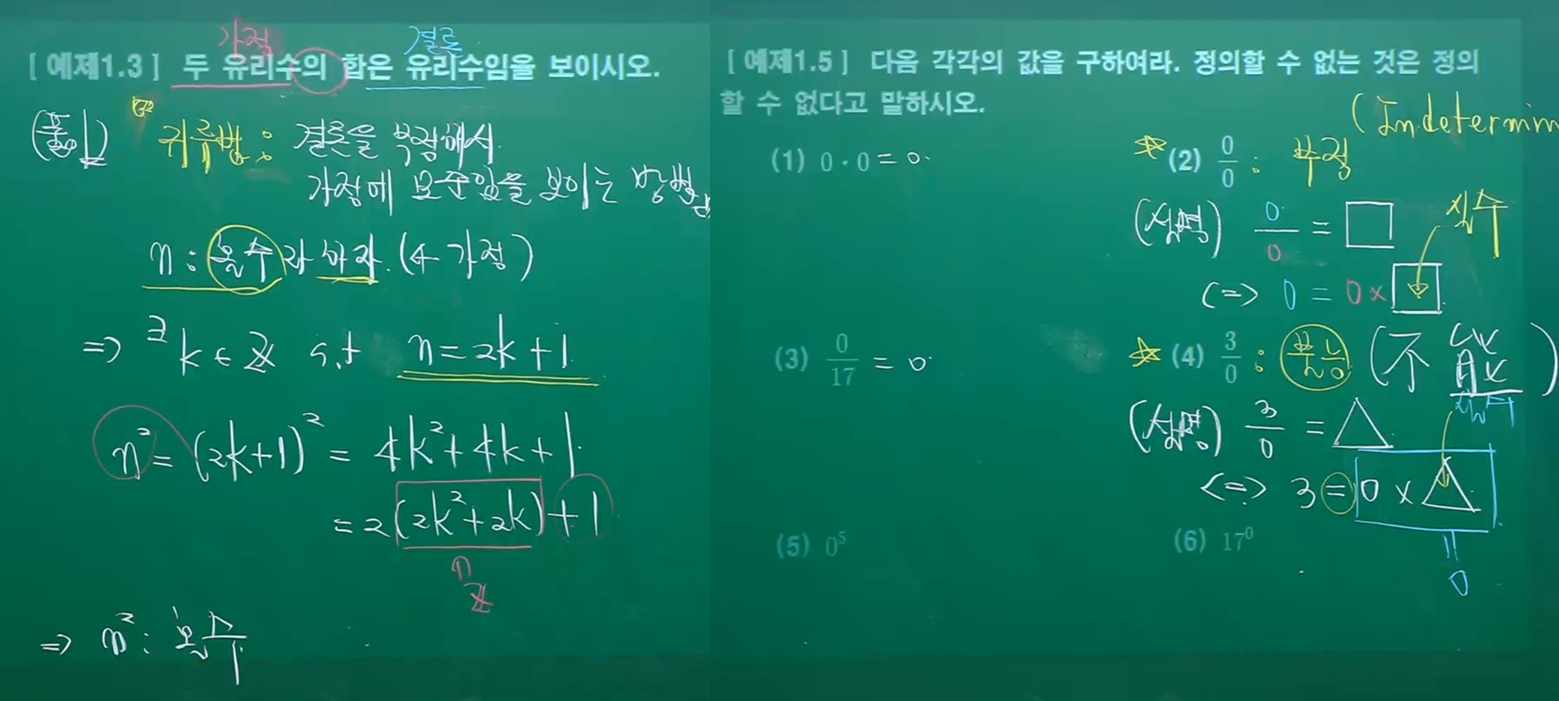 가정 결론
[예제1.3] 두 유리수의 합은 유리수임을 보이시오.
(풀이) 귀류법: 결론을 부정해서
가정에 모순임을 보이는 방법
n: 홀수라 하자. (← 가정)
⇒ ∃k∈ℤ s.t n=2k+1
n²=(2k+1)²=4k²+4k+1
=2(2k²+2k)+1
ℤ
⇒ n²: 홀수
[예제1.5] 다음 각각의 값을 구하여라. 정의할 수 없는 것은 정의
할 수 없다고 말하시오.
(Indetermin
(1) 0·0=0.
(2) 0/0 : 부정
(설명) 0/0 = □ 실수
(⇔) 0=0×□
(3) 0/17 = 0
(4) 3/0 : 불능 (不能)
(설명) 3/0 = △ 실수
⇔ 3=0×△
(5) 0⁵
(6) 17⁰
॥
0